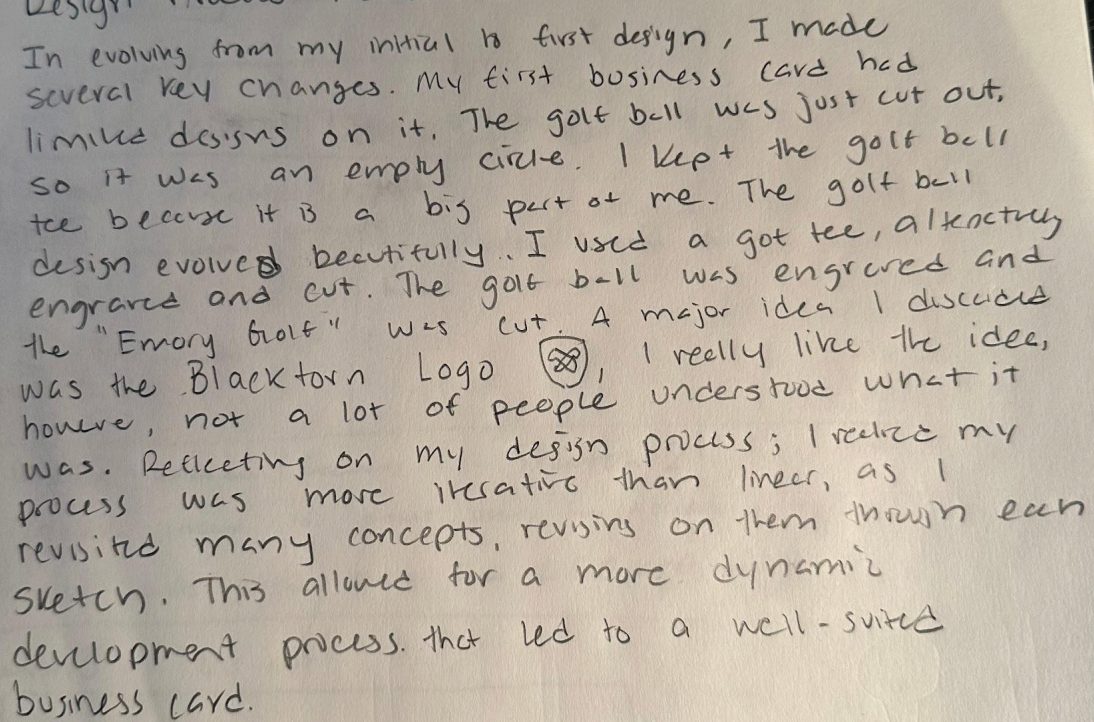 Design
In evolving from my initial to first design, I made
several key changes. My first business card had
limited designs on it. The golf ball was just cut out,
so it was an empty circle. I kept the golf ball
tee because it is a big part of me. The golf ball
design evolved beautifully. I used a got tee, alternatively
engraved and cut. The golf ball was engraved and
the "Emory Golf" was cut. A major idea I discarded
was the Blacktorn Logo, I really like the idea,
howere, not a lot of people understood what it
was. Reflecting on my design process; I realize my
process was more iterative than linear, as I
revisited many concepts, revising on them through each
sketch. This allowed for a more dynamic
development process. that led to a well-suited
business card.